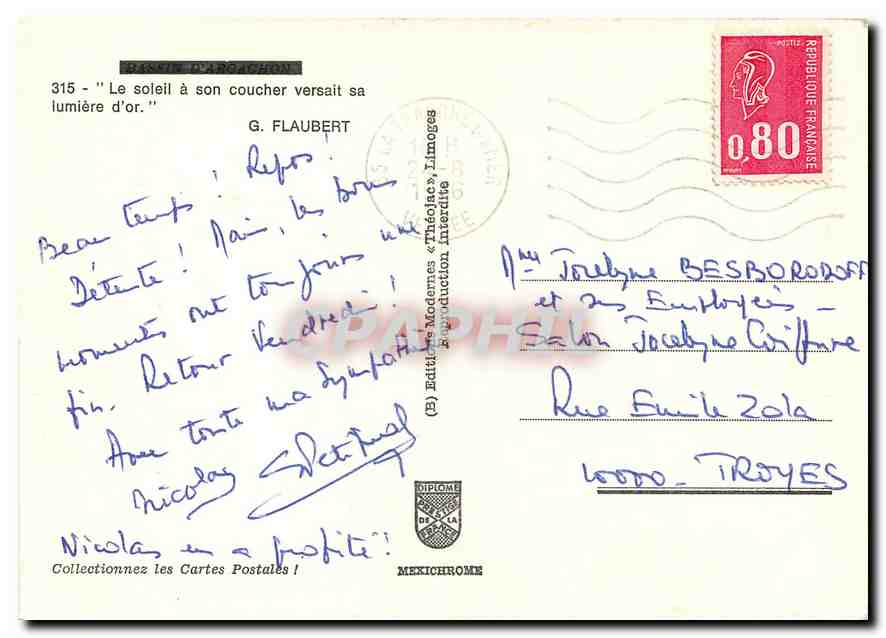 BASSIN D'ARCACHON
315 - " Le soleil à son coucher versait sa
lumière d'or. "
G. FLAUBERT
Beau temps ! Repos !
Détente ! Mais, les bons
moments ont toujours une
fin. Retour Vendredi !
Avec toute ma Sympathie
Nicolas
Nicolas en a profité !
Collectionnez les Cartes Postales !
(B) Editions Modernes «Théojac», Limoges
Reproduction interdite
DIPLOME
PRESTIGE
DE LA
FRANCE
MEXICHROME
POSTES
REPUBLIQUE FRANÇAISE
0,80
Jocelyne BESBORODOFF
et ses Employées -
Salon Jocelyne Coiffure
Rue Emile Zola
10000 - TROYES
CPAPHIL